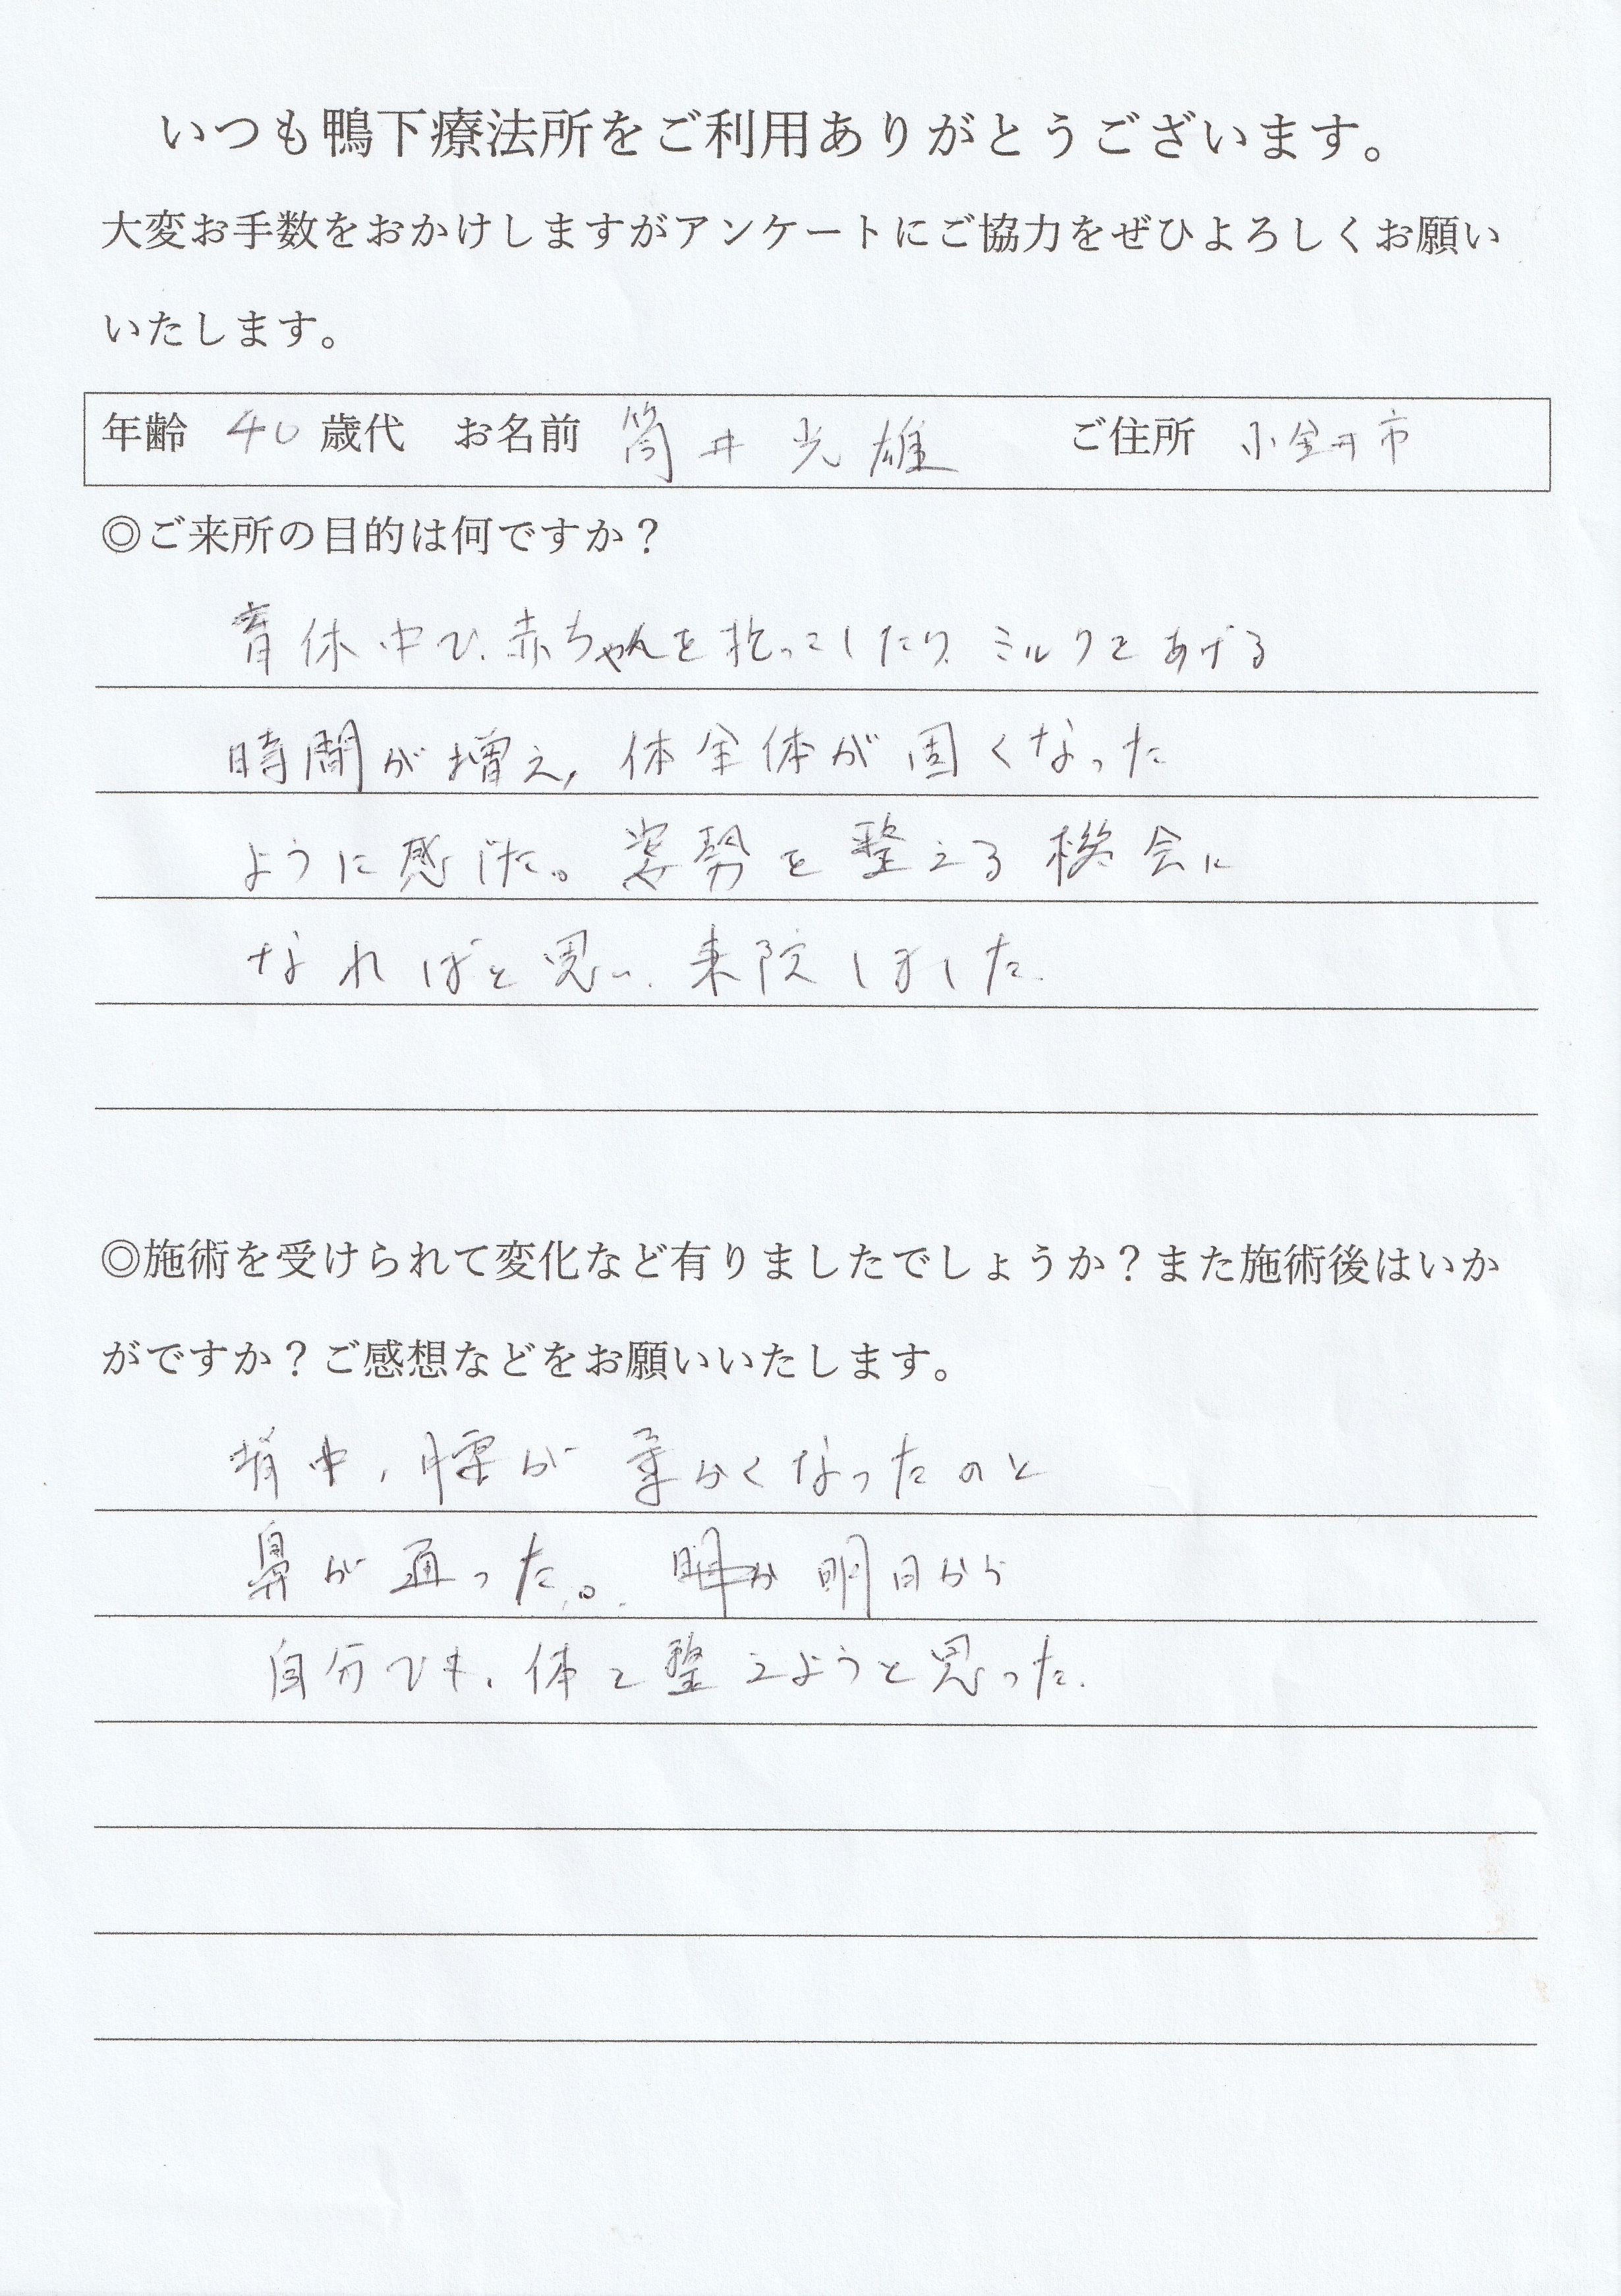 いつも鴨下療法所をご利用ありがとうございます。
大変お手数をおかけしますがアンケートにご協力をぜひよろしくお願い
いたします。
年齢 40 歳代 お名前 筒井 光雄 ご住所 小金井市
◎ご来所の目的は何ですか？
育休中で、赤ちゃんを抱っこしたり、ミルクをあげる
時間が増え、体全体が固くなった
ように感じた。姿勢を整える機会に
なればと思い、来院しました.
◎施術を受けられて変化など有りましたでしょうか？また施術後はいか
がですか？ご感想などをお願いいたします。
背中、腰が柔かくなったのと
鼻が通った。明日から
自分でも、体を整えようと思った.